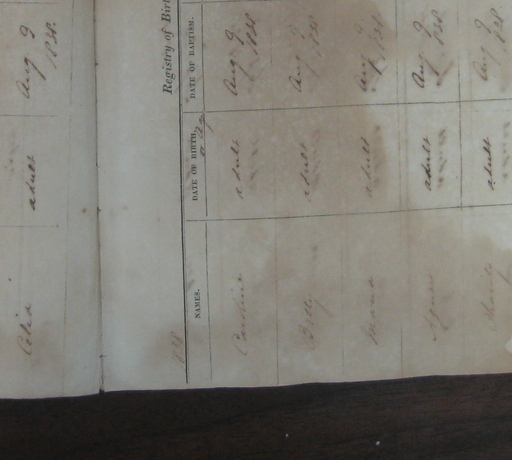 Celia adult Aug 9
1838.
Registry of Birt
1838
NAMES. DATE OF BIRTH, DATE OF BAPTISM.
or Age
Caroline adult Aug 9
1838
Betty adult Aug 9
1838
Maria adult Aug 9
1838
Agnes adult Aug 9
1838
Charity adult Aug 9
1838